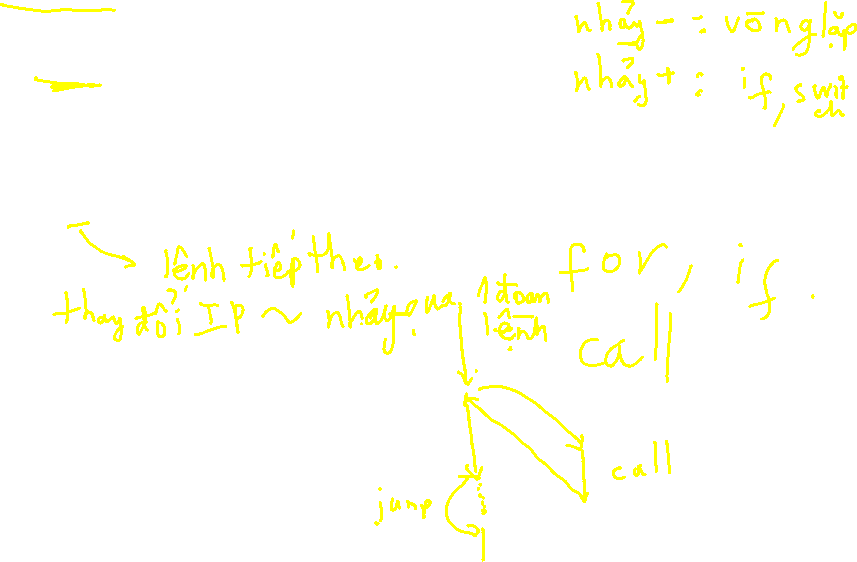 nhảy - : vòng lặp
nhảy + : if, switch
→ lệnh tiếp theo.
thay đổi IP ~ nhảy qua 1 đoạn lệnh
for, if.
call
call
jump